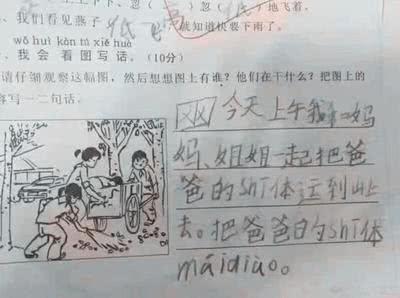 上上下下、忽( )忽( )地飞着。
我们看见燕子低飞,就知道快要下雨了。
wǒ huì kàn tú xiě huà
、我 会 看 图 写 话。(10分)
请仔细观察这幅图,然后想想图上有谁?他们在干什么?把图上的
容写一二句话。
今天上午我和妈
妈、姐姐一起把爸
爸的shī体运到山上
去。把爸爸的shī体
mái diào。